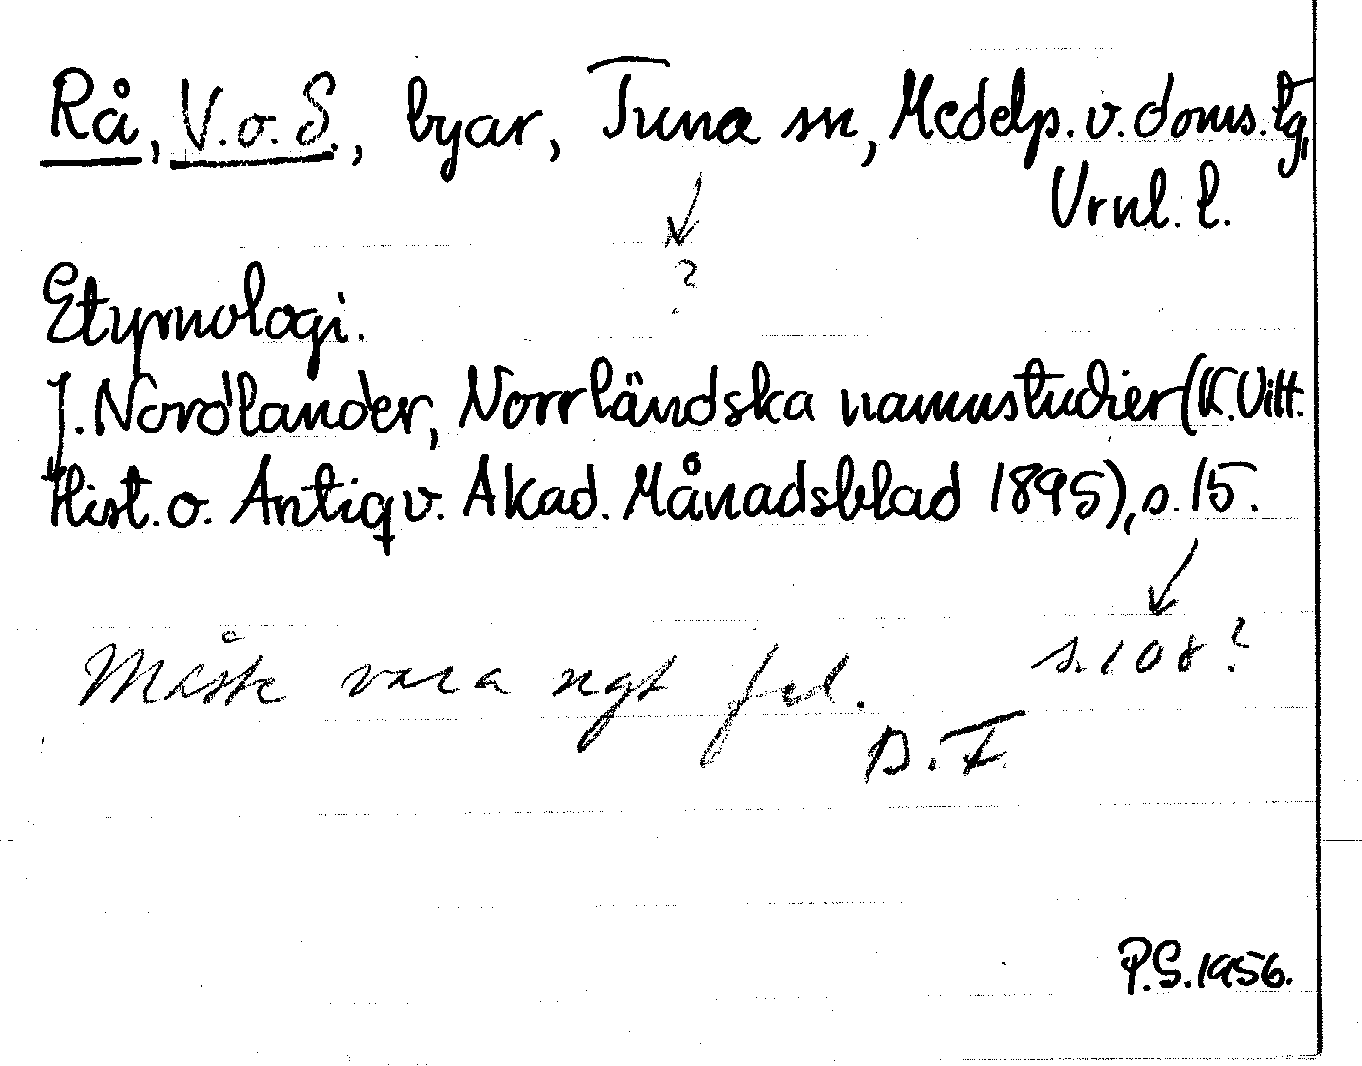 Rå, V. o. S., byar, Tuna sn, Medelp. v. doms. tg,
Vrnl. l.
?
Etymologi.
J. Nordlander, Norrländska namnstudier (K. Vitt.
Hist. o. Antiqv. Akad. Månadsblad 1895), s. 15.
s. 108?
Måste vara ngt fel.
D. F.
P.S. 1956.